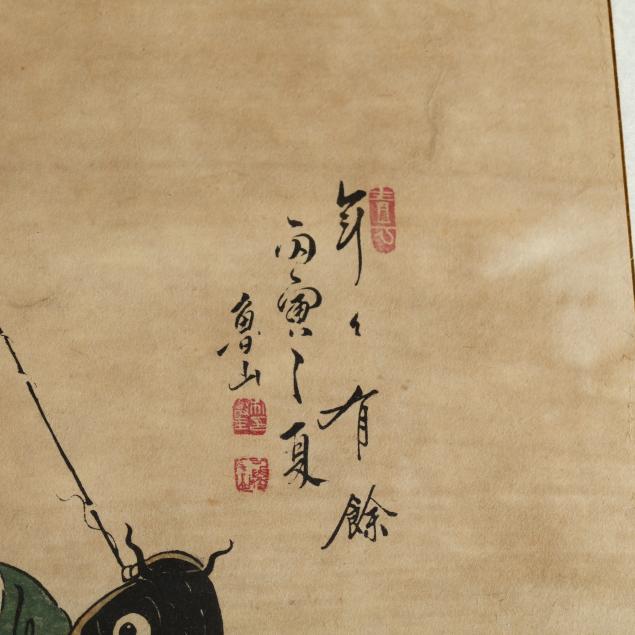 年々有餘
丙寅之夏
魯山